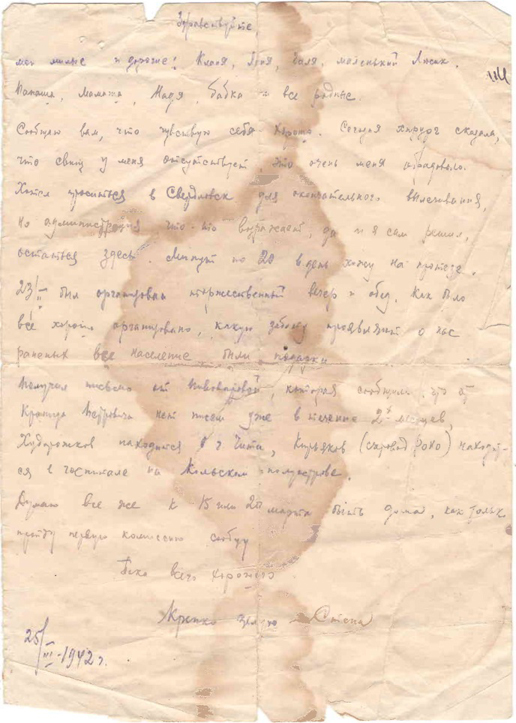 Здравствуйте,
мои милые и дорогие! Клава, Зоя, Галя, маленький
Папаша, Мамаша, Надя, бабка и все родные.
Сообщаю вам, что чувствую себя хорошо. Сегодня хирург сказала,
что свищ у меня отсутствует это очень меня обрадовало.
Хотел проситься в Свердловск для окончательного вылечивания,
но администрация что-то возражает, да и я сам решил,
остаться здесь. Минут по 20 в день хожу на протезе.
23/II был организован торжественный вечер и обед. Как было
всё хорошо организовано, какую заботу проявляют о нас
раненых всё население были подарки
Получил письмо от которая сообщила, что от
Петровича нет писем уже в течение 2х месяцев,
Худорожков находится в г Чита, Кирьяков (старовид РОКО) находит-
ся в госпитале на Кольском полуострове.
Думаю все же к 15 или 20 марта быть дома, как только
пройду первую комиссию сообщу
Пока всего хорошего
Крепко Стопа
25/II-1942 г.